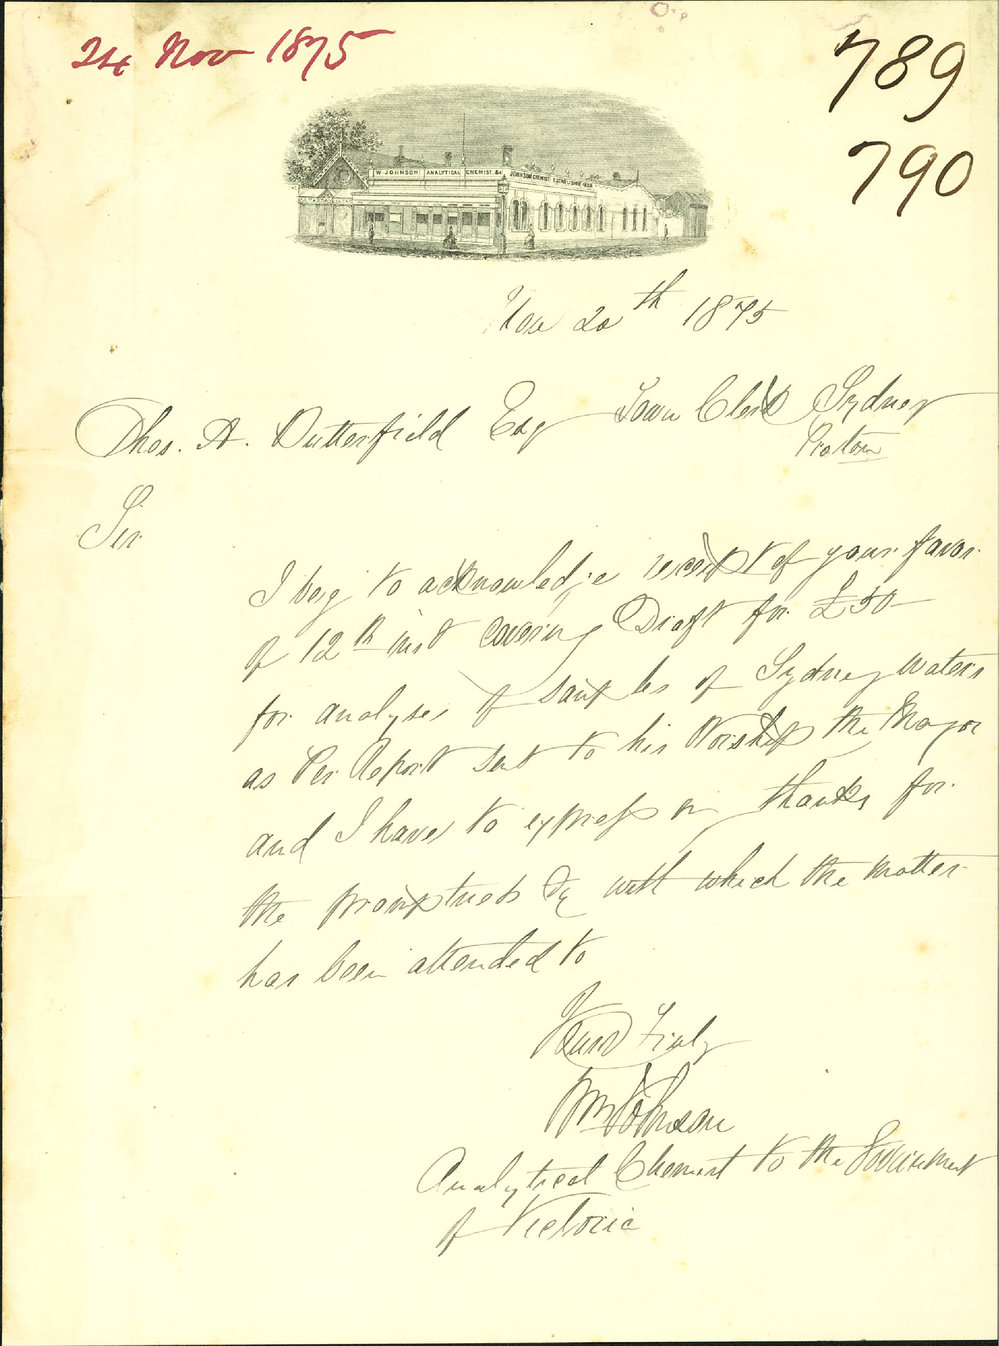 24 Nov 1875
789
790
W. JOHNSON ANALYTICAL CHEMIST. &c
JOHNSON CHEMIST ESTABLISHED
Nov 20th 1875
Thos. A. Butterfield Esq Town Clerk Sydney
Protem
Sir
I beg to acknowledge receipt of your favor
of 12th inst covering Draft for £50
for analyses of samples of Sydney Waters
as Per Report sent to his Worship the Mayor
and I have to express my thanks for
the promptness with which the matter
has been attended to
Yours Truly
Wm Johnson
Analytical Chemist to the Government
of Victoria